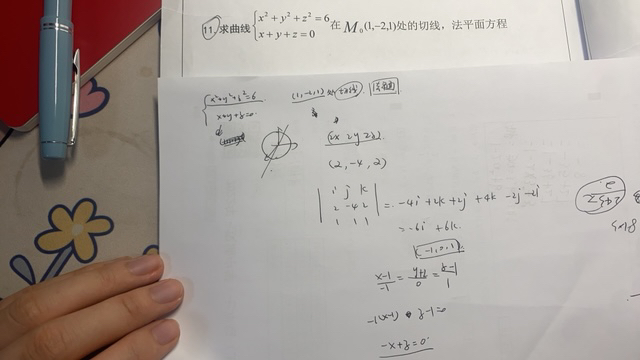 11.求曲线{x²+y²+z²=6 x+y+z=0 在M₀(1,-2,1)处的切线，法平面方程
{x²+y²+z²=6 (1,-2,1)处切线
x+y+z=0
(2x 2y 2z)
(2,-4,2)
| i j k |
| 2 -4 2 | = -4i+2k+2j+4k-2j-2i
| 1 1 1 |
=-6i+6k.
(-1,0,1)
x-1/-1=y+2/0=z-1/1
-1(x-1) z-1=0
-x+z=0